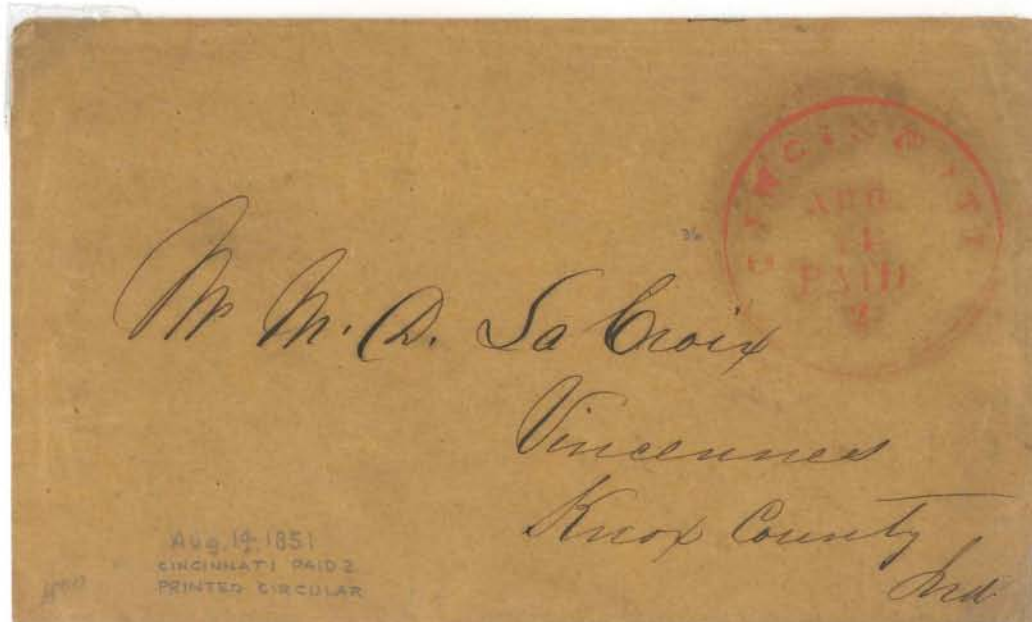 CINCINNATI
AUG
14
PAID
2
36
Mr M. D. La Croix
Vincennes
Knox County
Ind
Aug. 14, 1851
CINCINNATI PAID 2
PRINTED CIRCULAR